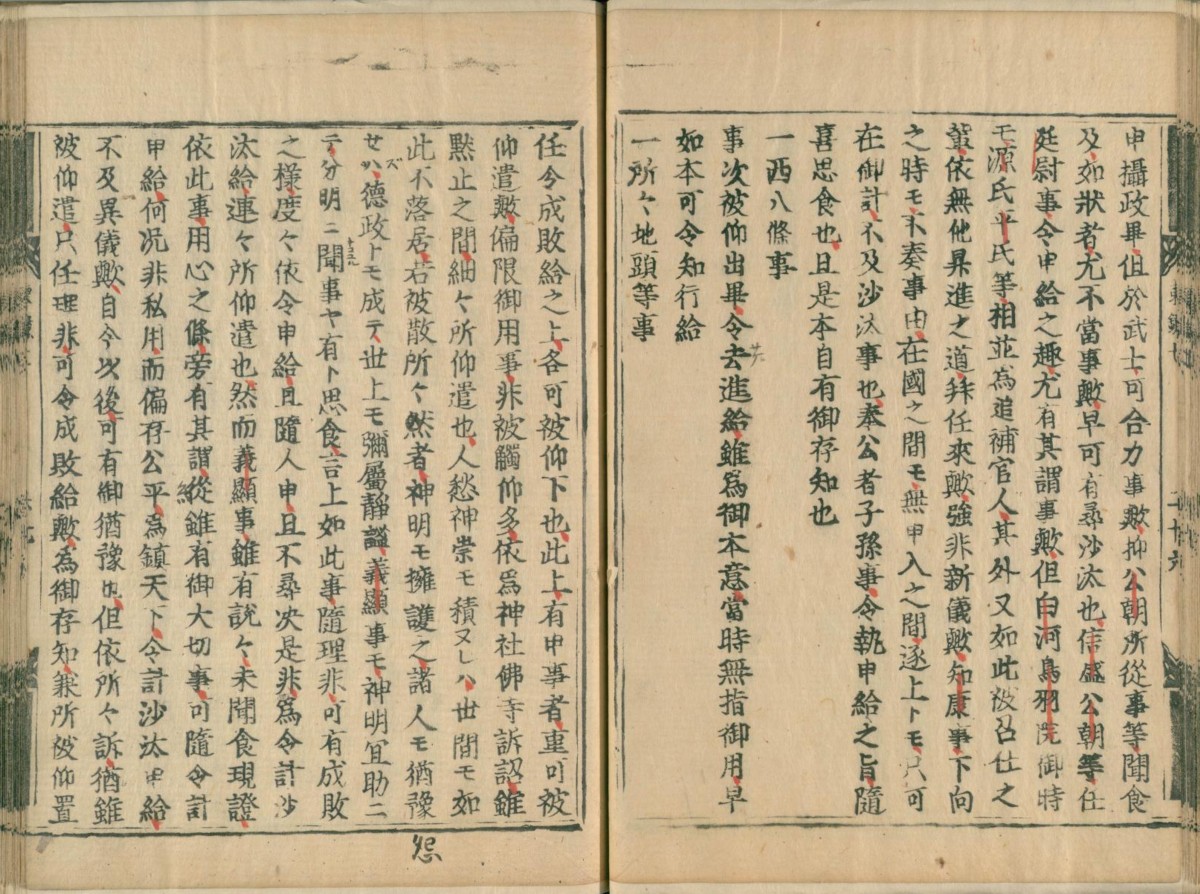 申攝政畢、但於武士可合力事歟、抑公朝所從事等、聞食
及、如狀者、尤不當事歟、早可有尋沙汰也、信盛公朝等任
廷尉事、令申給之趣、尤有其謂事歟、但白河鳥羽院御時
モ、源氏平氏等相並為追補官人、其外又如此被召仕之
輩、依無他昇進之道、拜任來歟、強非新儀歟、知康事、下向
之時モ、不奏事由、在國之間モ、無申入之間、逐上トモ、只可
在御計、不及沙汰事也、奉公者子孫事、令執申給之旨、隨
喜思食也、且是本自有御存知也
一西八條事
事次被仰出畢、令去進給、雖爲御本意、當時無指御用、早
如本可令知行給
一所々地頭等事
任令成敗給之上、各可被仰下也、此上有申事者、重可被
仰遣歟、偏限御用事、非被觸仰、多依爲神社佛寺訴訟、雖
黙止之間、細々所仰遣也、人愁神祟モ積又レハ、世間モ如
此不落居、若被散所々然者、神明モ擁護之、諸人モ猶豫
せハ、德政トモ成テ、世上モ彌屬靜謐、義顯事モ、神明冝助ニ
テ、分明ニ聞事ヤ有ト思食、言上如此事、隨理非、可有成敗
之樣、度々依令申給、且隨人申、且不尋决是非、爲令計沙
汰給、連々所仰遣也、然而義顯事、雖有説々、未聞食現證、
依此事用心之條、旁有其謂、從雖有御大切事、可隨令計
申給、何况非私用、而偏存公平、爲鎮天下、令計沙汰申給、
不及異儀歟、自今以後、可有御猶豫也、但依所々訴、猶雖
被仰遣、只任理非、可令成敗給歟、為御存知、兼所被仰置
怨